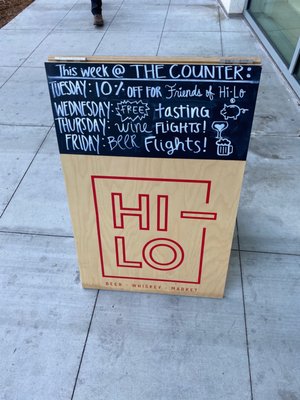 This week @ THE COUNTER:
TUESDAY: 10% OFF FOR Friends of Hi-Lo
WEDNESDAY: FREE tasting
THURSDAY: Wine FLIGHTS!
FRIDAY: BEER Flights!
HI-
LO
BEER · WHISKEY · MARKET